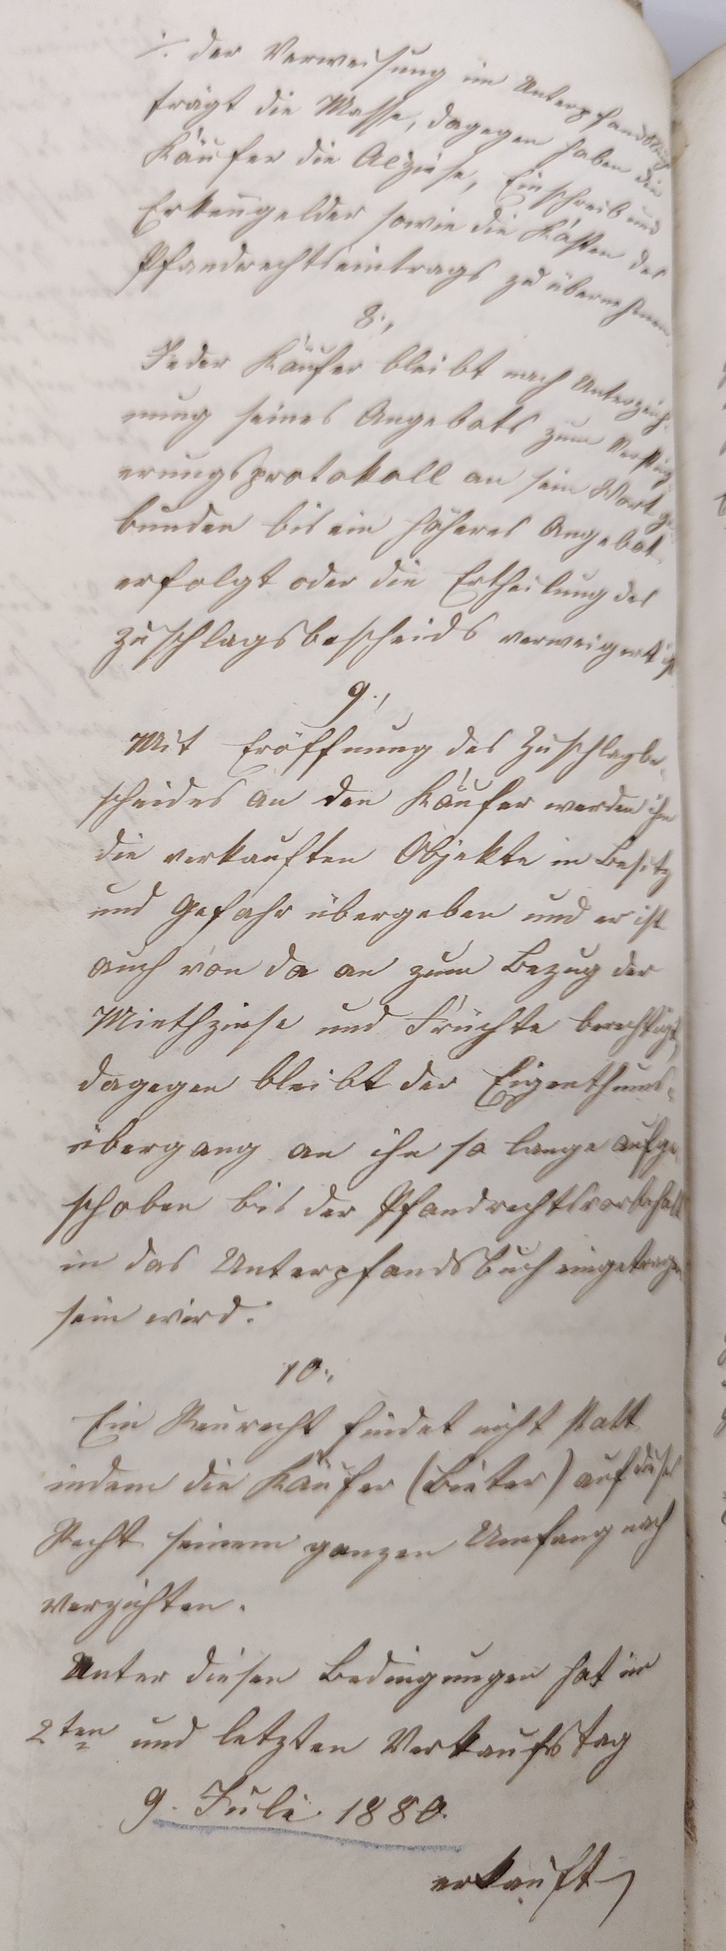 ./. der Verweisung im Unterpfandsbuch
trägt die Masse, dagegen haben die
Käufer die Accise, Einschreib und
Erkenngelder sowie die Kosten des
Pfandrechtseintrags zu übernehmen.
8.,
Jeder Käufer bleibt nach Unterzeich-
nung seines Angebots zum Versteig-
erungsprotokoll an sein Wort ge-
bunden bis ein höheres Angebot
erfolgt oder die Ertheilung des
Zuschlagsbescheids verweigert ist
9.,
Mit Eröffnung des Zuschlagbe-
scheides an den Käufer werden ihm
die verkauften Objekte in Besitz
und Gefahr übergeben und er ist
auch von da an zum Bezug der
Miethzinse und Früchte berechtigt,
dagegen bleibt der Eigenthums-
übergang an ihn so lange aufge-
schoben bis der Pfandrechtsvorbehalt
in das Unterpfandsbuch eingetragen
sein wird.
10.,
Ein Reurecht findet nicht statt
indem die Käufer (Bieter) auf dieses
Recht seinem ganzen Umfang nach
verzichten.
Unter diesen Bedingungen hat im
2ten und letzten Verkaufstag
9. Juli 1880.
erkauft,